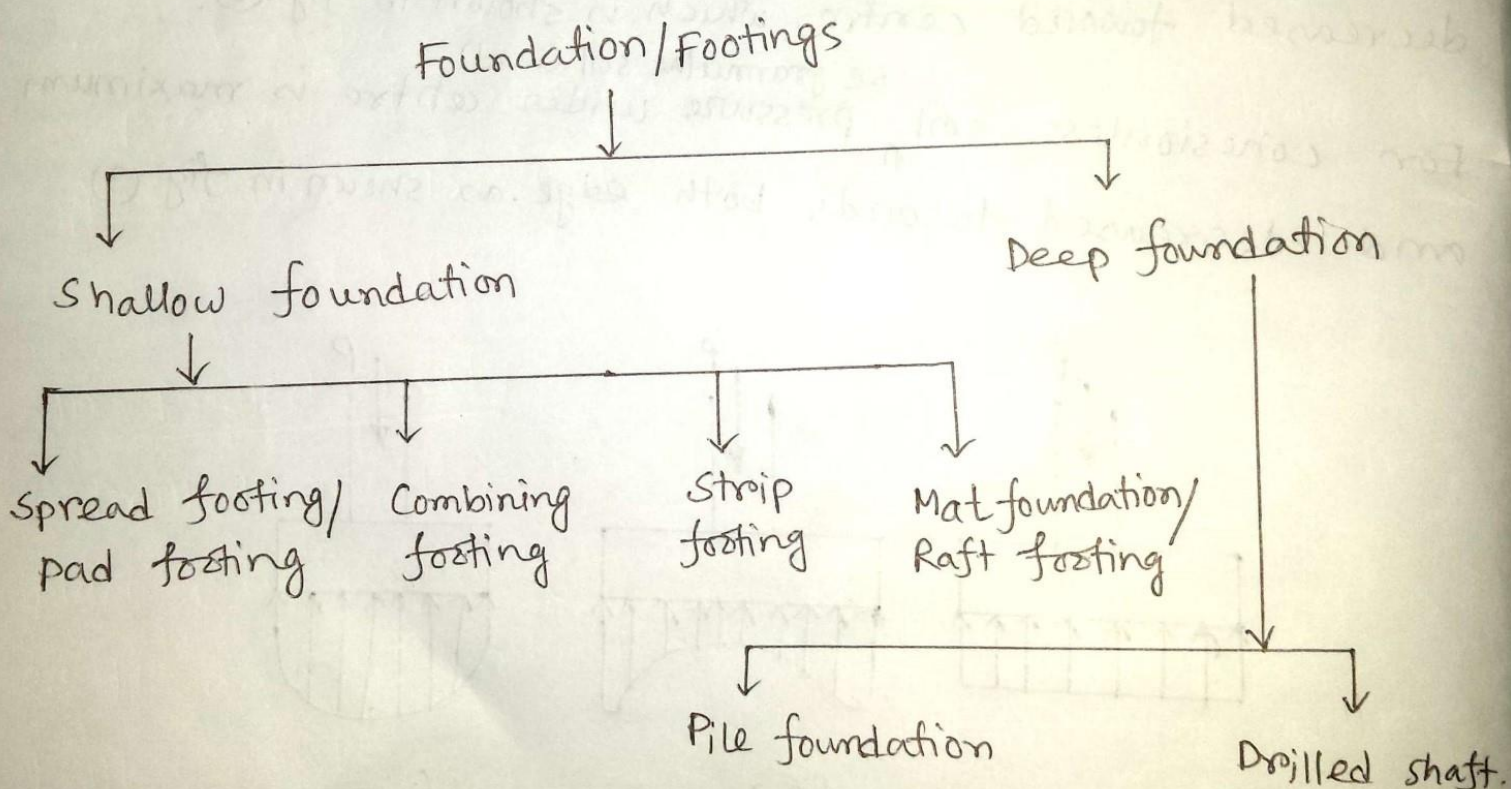 Foundation/Footings
Shallow foundation
Deep foundation
Spread footing/
pad footing.
Combining
footing
Strip
footing
Mat foundation/
Raft footing
Pile foundation
Drilled shaft.